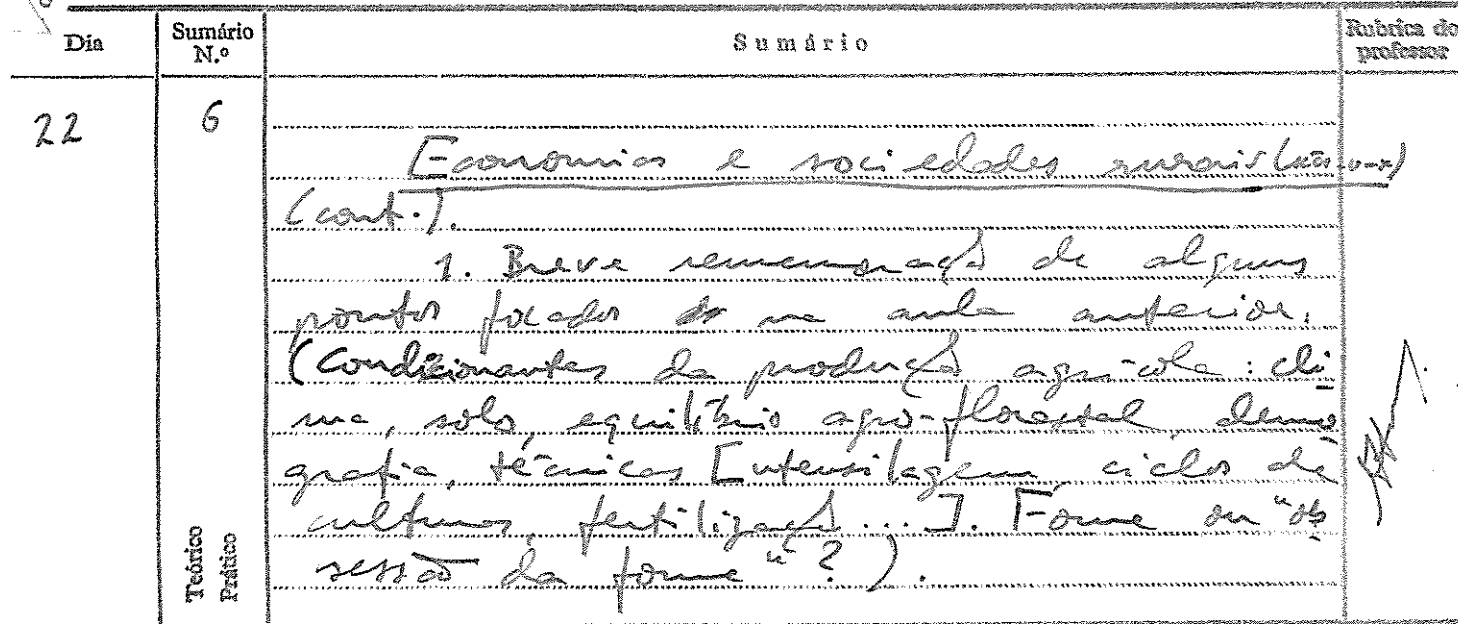 Dia
Sumário N.º
Sumário
Rubrica do professor
22
6
Economias e sociedades rurais (sécs. V-X)
(cont.).
1. Breve rememoração de alguns
pontos focados na aula anterior.
(Condicionantes da produção agrícola: cli
ma, solo, equilíbrio agro-florestal, demo
grafia, técnicas [utensilagem, ciclos de
culturas, fertilização...]. Fome ou "ob
sessão da fome"?).
Teórico
Prático